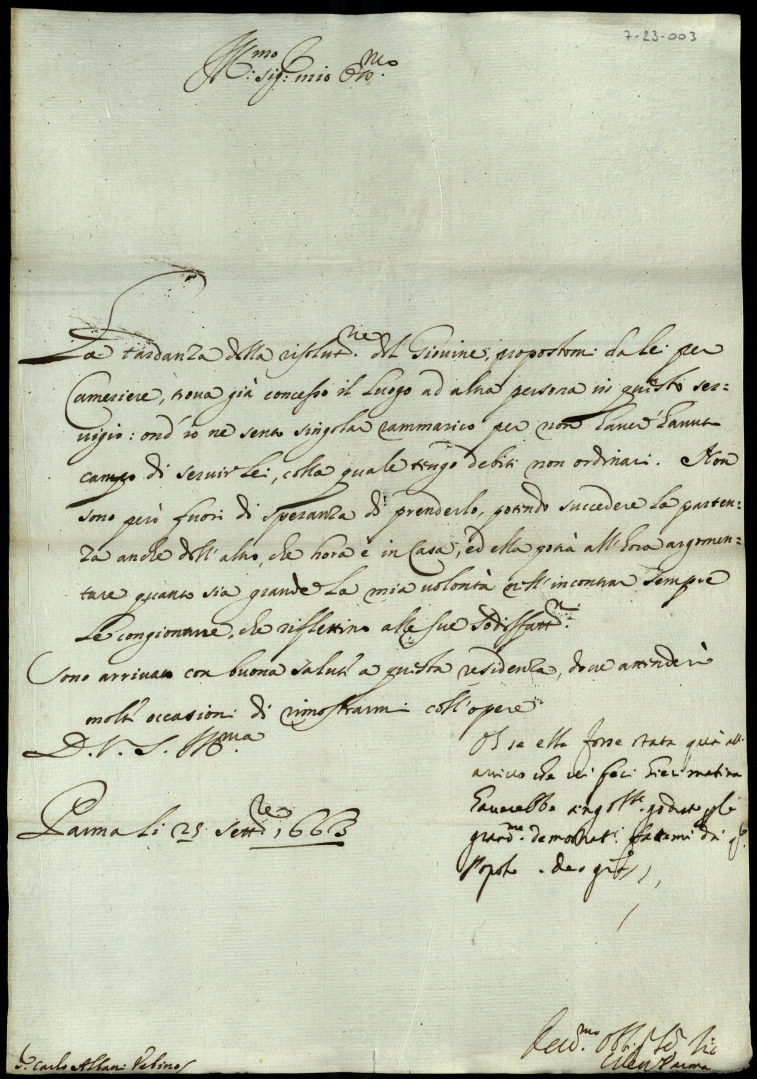 7-23-003
Ill.mo sig.r mio Oss.mo
La tardanza della risolut.ne del Giovine, propostomi da lei per
Cameriere, trova già concesso il luogo ad altra persona in questo ser=
vigio: ond'io ne sento singolar rammarico per non haver' havuto
campo di servir lei, colla quale tengo debiti non ordinari. Non
sono però fuori di speranza di prenderlo, potendo succedere la parten=
za anche dell'altro, che hora è in Casa, ed ella potrà all'hora argomen=
tare quanto sia grande la mia volontà nell'incontrar sempre
le congionture, che riflettino alle sue sodisfatt.ni
Sono arrivato con buona salute a questa residenza, dove attenderò
molte occasioni di rimostrarmi coll'opere
D. V. S. Ill.ma
Parma li 25 Sett.re 1663
O se ella fosse stata quà all'
arrivo che ci feci hieri matina
haverebbe goduto
grand.me demostrat. fattemi da
Popolo
S.r Carlo Albani Urbino